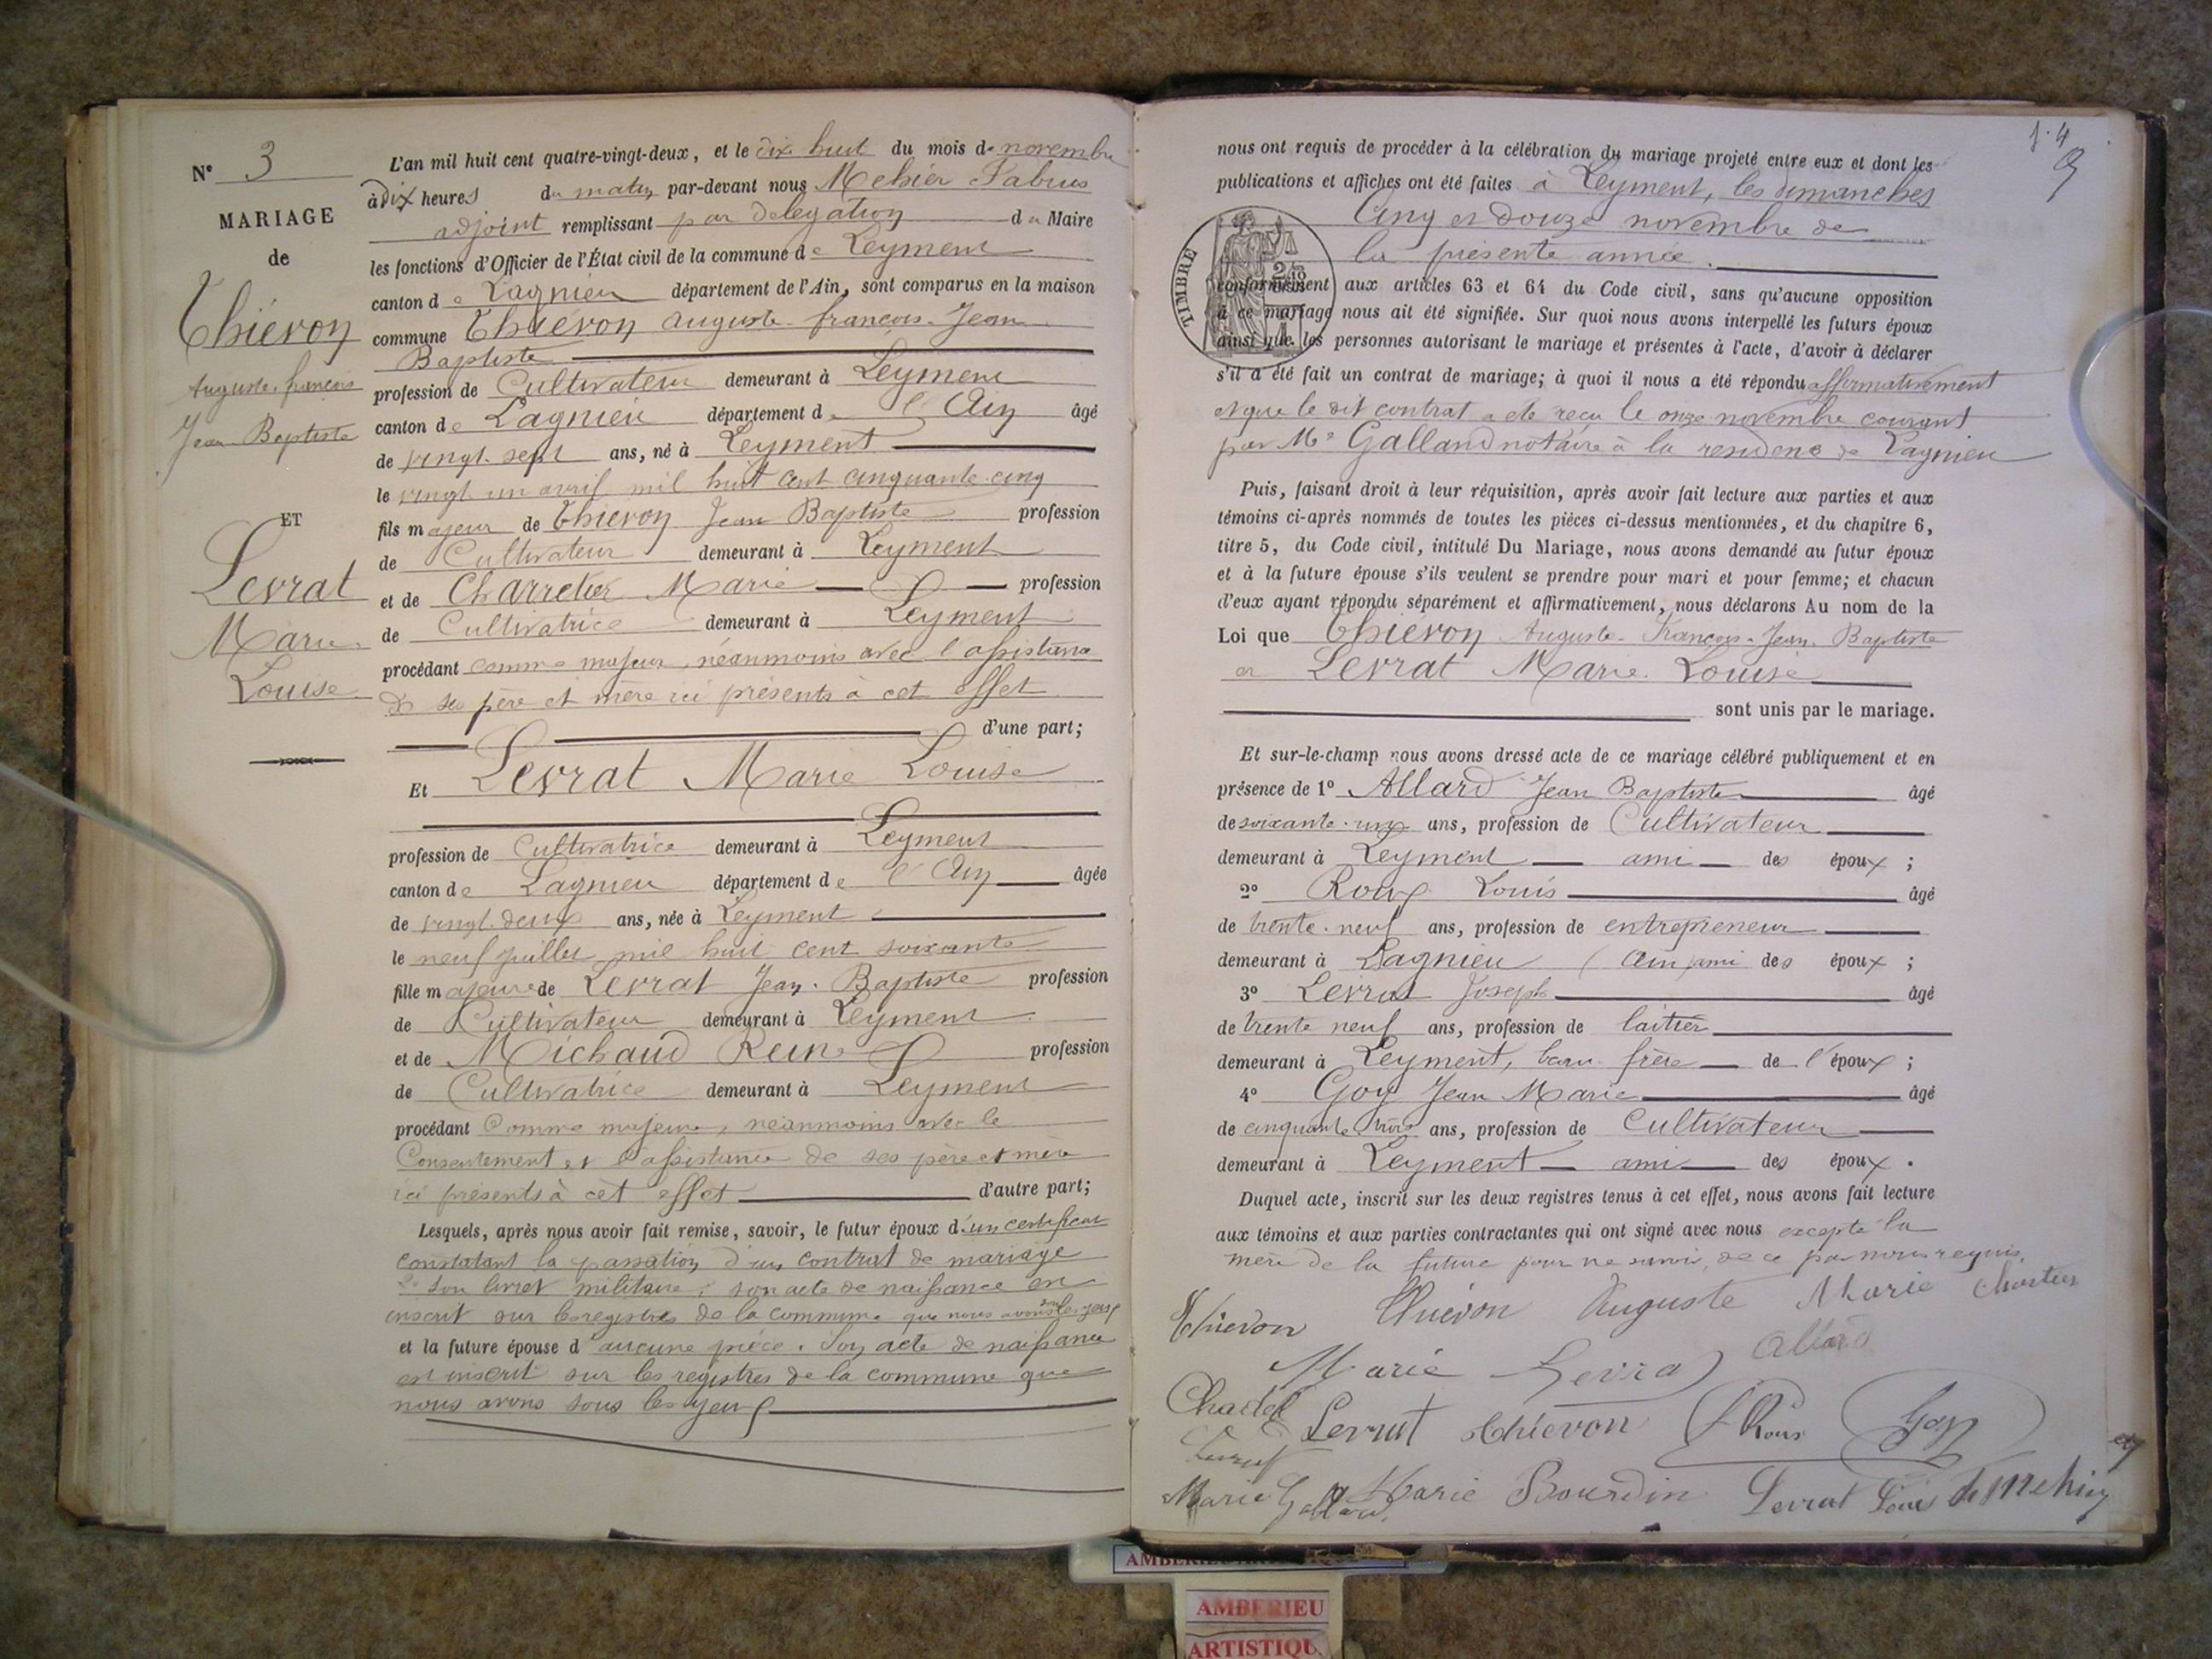 N° 3
MARIAGE
de
Thiévon
Auguste-françois
Jean-Baptiste
ET
Levrat
Marie
Louise
L'an mil huit cent quatre-vingt-deux, et le dix huit du mois de novembre
à dix heures du matin, par-devant nous Mehier
adjoint remplissant par délégation du Maire
les fonctions d'Officier de l'État civil de la commune de Leyment
canton de Lagnieu département de l'Ain, sont comparus en la maison
commune Thiévon Auguste-françois-Jean
Baptiste
profession de Cultivateur demeurant à Leyment
canton de Lagnieu département de l'Ain âgé
de vingt-sept ans, né à Leyment
le vingt un avril mil huit cent cinquante-cinq
fils majeur de Thievon Jean Baptiste profession
de Cultivateur demeurant à Leyment
et de Charretier Marie profession
de Cultivatrice demeurant à Leyment
procédant comme majeur, néanmoins avec l'assistance
de ses père et mère ici présents à cet effet
d'une part;
Et Levrat Marie Louise
profession de Cultivatrice demeurant à Leyment
canton de Lagnieu département de l'Ain âgée
de vingt-deux ans, née à Leyment
le neuf juillet mil huit cent soixante
fille majeure de Levrat Jean-Baptiste profession
de Cultivateur demeurant à Leyment
et de Michaud Reine profession
de Cultivatrice demeurant à Leyment
procédant Comme majeure, néanmoins avec le
Consentement et l'assistance de ses père et mère
ici présents à cet effet d'autre part;
Lesquels, après nous avoir fait remise, savoir, le futur époux d'un certificat
constatant la passation d'un contrat de mariage
son livret militaire; son acte de naissance en
inscrit sur les registres de la commune que nous avons sous les yeux
et la future épouse d'aucune pièce. Son acte de naissance
est inscrit sur les registres de la commune que
nous avons sous les yeux
f. 4
nous ont requis de procéder à la célébration du mariage projeté entre eux et dont les
publications et affiches ont été faites à Leyment, les dimanches
Cinq et douze novembre de
la présente année.
TIMBRE
conformément aux articles 63 et 64 du Code civil, sans qu'aucune opposition
à ce mariage nous ait été signifiée. Sur quoi nous avons interpellé les futurs époux
ainsi que les personnes autorisant le mariage et présentes à l'acte, d'avoir à déclarer
s'il a été fait un contrat de mariage; à quoi il nous a été répondu affirmativement
et que le dit contrat a été reçu le onze novembre courant
par Me Galland notaire à la résidence de Lagnieu
Puis, faisant droit à leur réquisition, après avoir fait lecture aux parties et aux
témoins ci-après nommés de toutes les pièces ci-dessus mentionnées, et du chapitre 6,
titre 5, du Code civil, intitulé Du Mariage, nous avons demandé au futur époux
et à la future épouse s'ils veulent se prendre pour mari et pour femme; et chacun
d'eux ayant répondu séparément et affirmativement, nous déclarons Au nom de la
Loi que Thiévon Auguste-François-Jean-Baptiste
et Levrat Marie-Louise
sont unis par le mariage.
Et sur-le-champ nous avons dressé acte de ce mariage célébré publiquement et en
présence de 1° Allard Jean Baptiste âgé
de soixante-un ans, profession de Cultivateur
demeurant à Leyment ami des époux;
2° Roux Louis âgé
de trente-neuf ans, profession de entrepreneur
demeurant à Lagnieu (Ain) ami des époux;
3° Levrat Joseph âgé
de trente neuf ans, profession de laitier
demeurant à Leyment, beau-frère de l'époux;
4° Goy Jean Marie âgé
de cinquante trois ans, profession de Cultivateur
demeurant à Leyment ami des époux.
Duquel acte, inscrit sur les deux registres tenus à cet effet, nous avons fait lecture
aux témoins et aux parties contractantes qui ont signé avec nous excepté la
mère de la future pour ne savoir, de ce par nous requis.
Thievon Thievon Auguste Marie
Marie Levrat Allard
Levrat Thiévon L Roux Goy
Marie Galland Marie Bourdin Levrat Mehier
AMBERIEU
ARTISTIQU